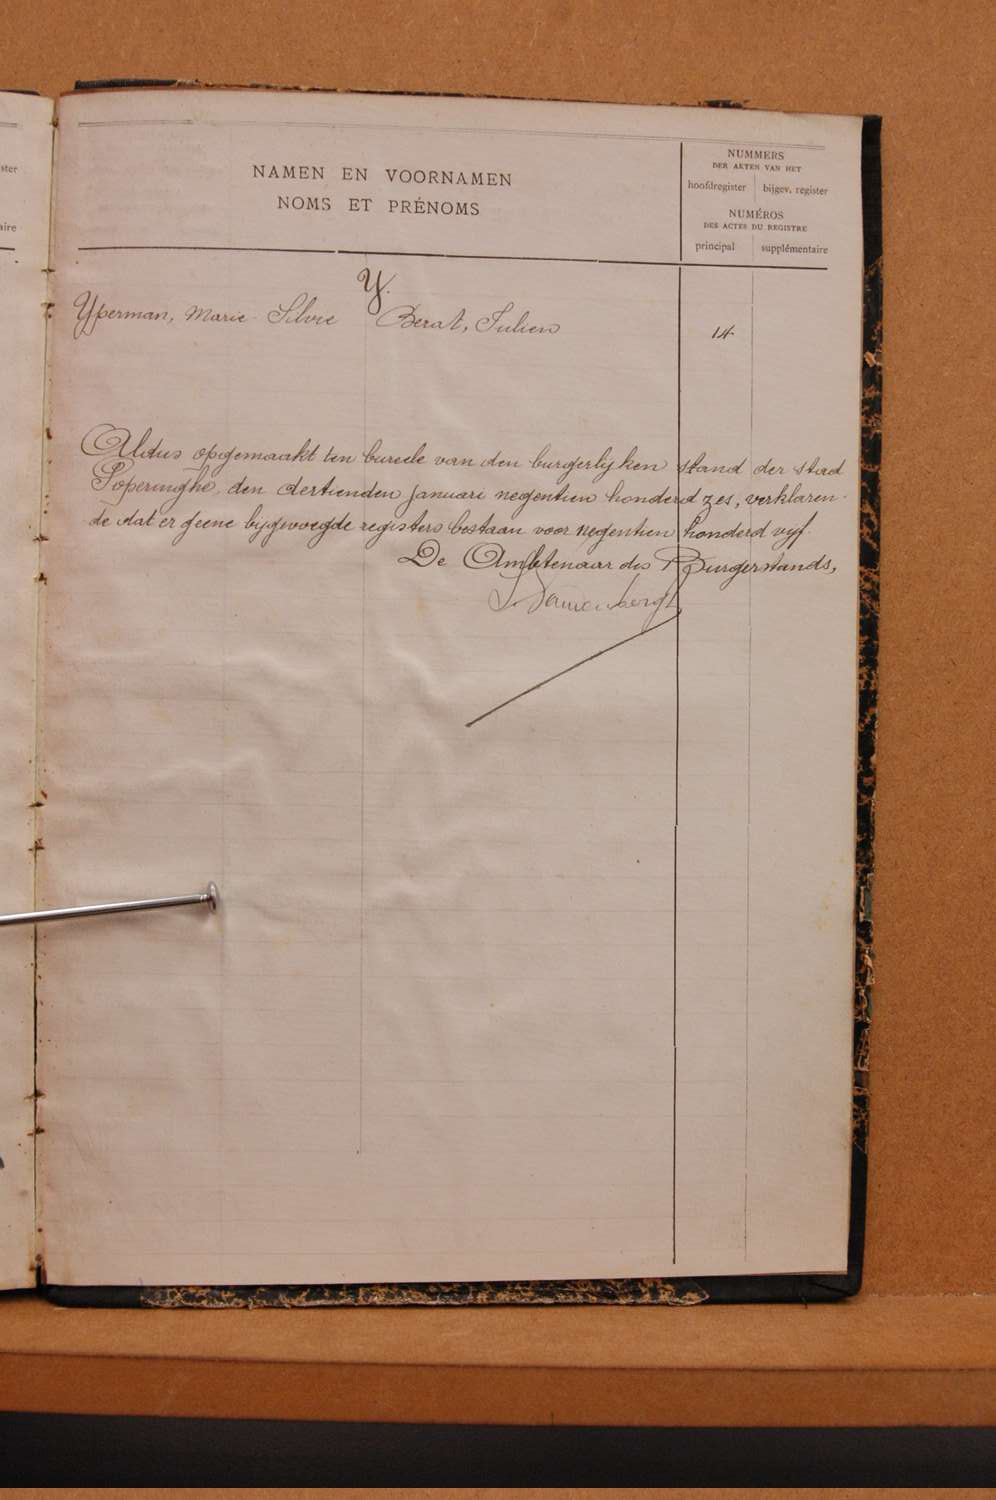 ster
aire
NAMEN EN VOORNAMEN
NOMS ET PRÉNOMS
NUMMERS
DER AKTEN VAN HET
hoofdregister bijgev. register
NUMÉROS
DES ACTES DU REGISTRE
principal supplémentaire
Y.
Yperman, Marie Silvie Berat, Julien 14
Aldus opgemaakt ten bureele van den burgerlijken stand der stad
Poperinghe, den dertienden januari negentien honderd zes, verklaren-
de dat er geene bijgevoegde registers bestaan voor negentien honderd vijf.
De Ambtenaar des Burgerstands,